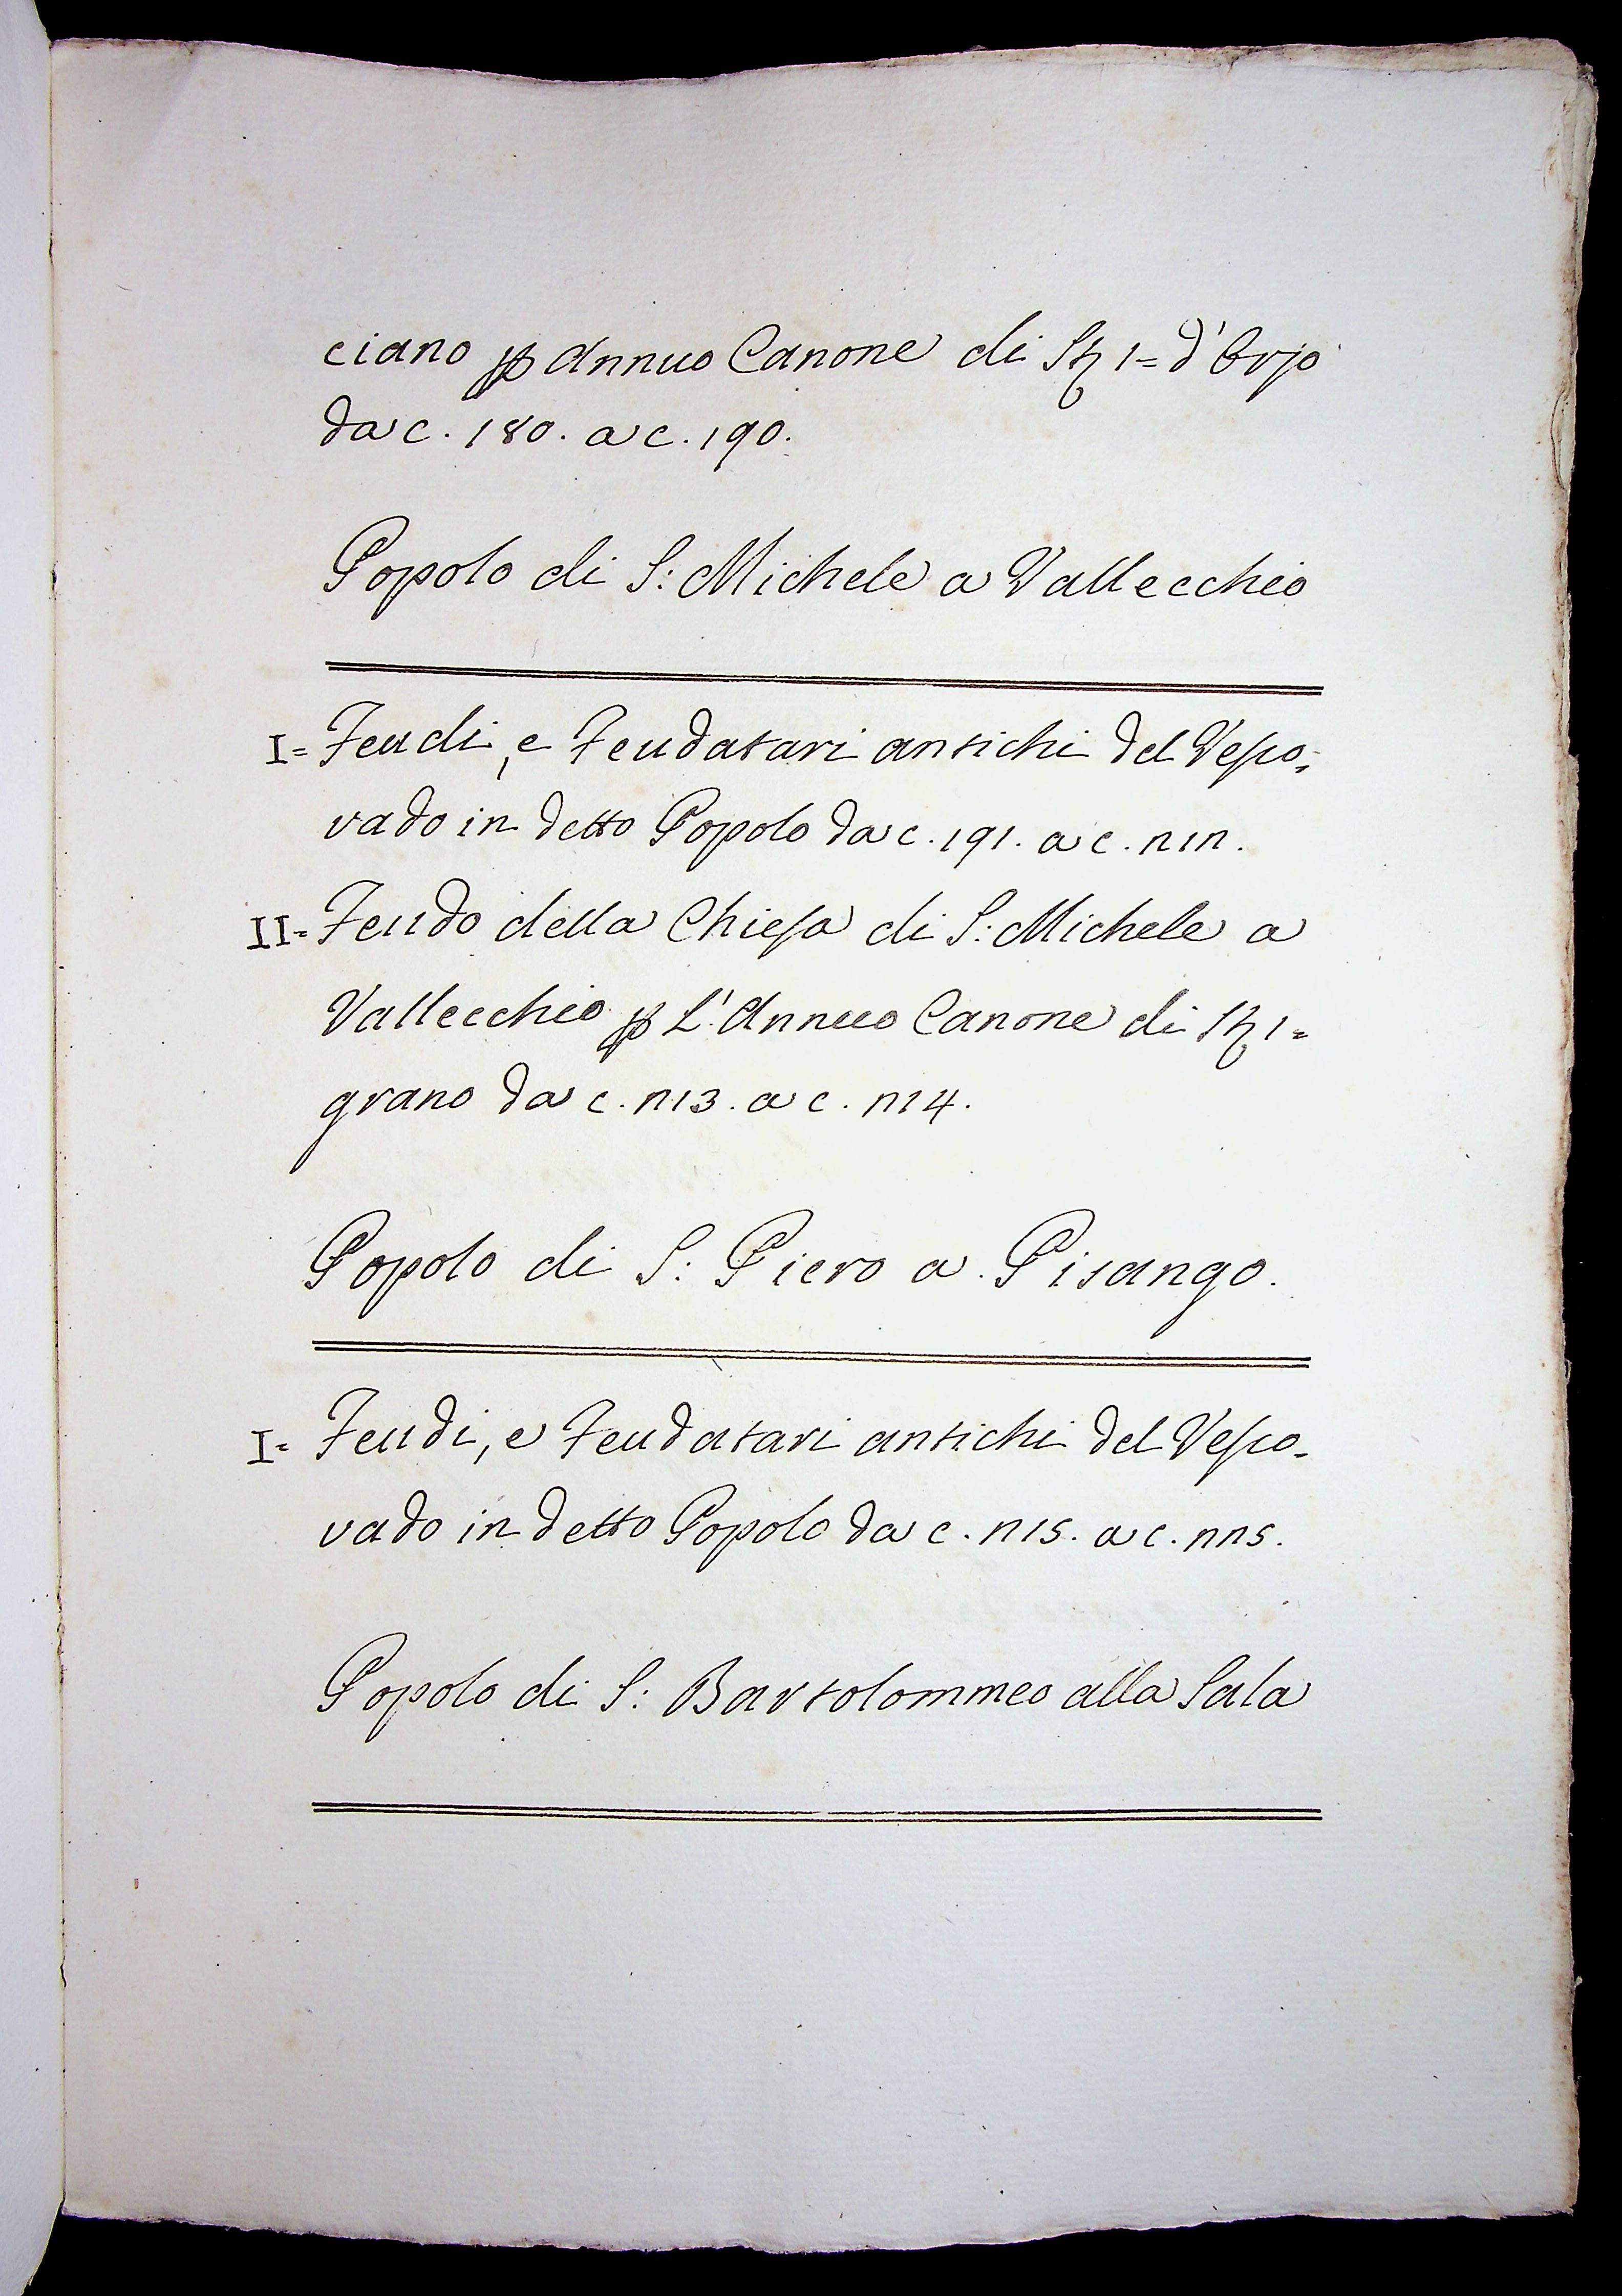 ciano p Annuo Canone di St 1= d'Orzo
da c. 180. a c. 190.
Popolo di S: Michele a Vallecchio
I= Feudi, e Feudatari antichi del Vesco-
vado in detto Popolo da c. 191. a c. 212.
II= Feudo della Chiesa di S: Michele a
Vallecchio p L'Annuo Canone di St 1=
grano da c. 213. a c. 214.
Popolo di S: Piero a Pisango.
I= Feudi, e Feudatari antichi del Vesco-
vado in detto Popolo da c. 215. a c. 225.
Popolo di S: Bartolommeo alla Sala